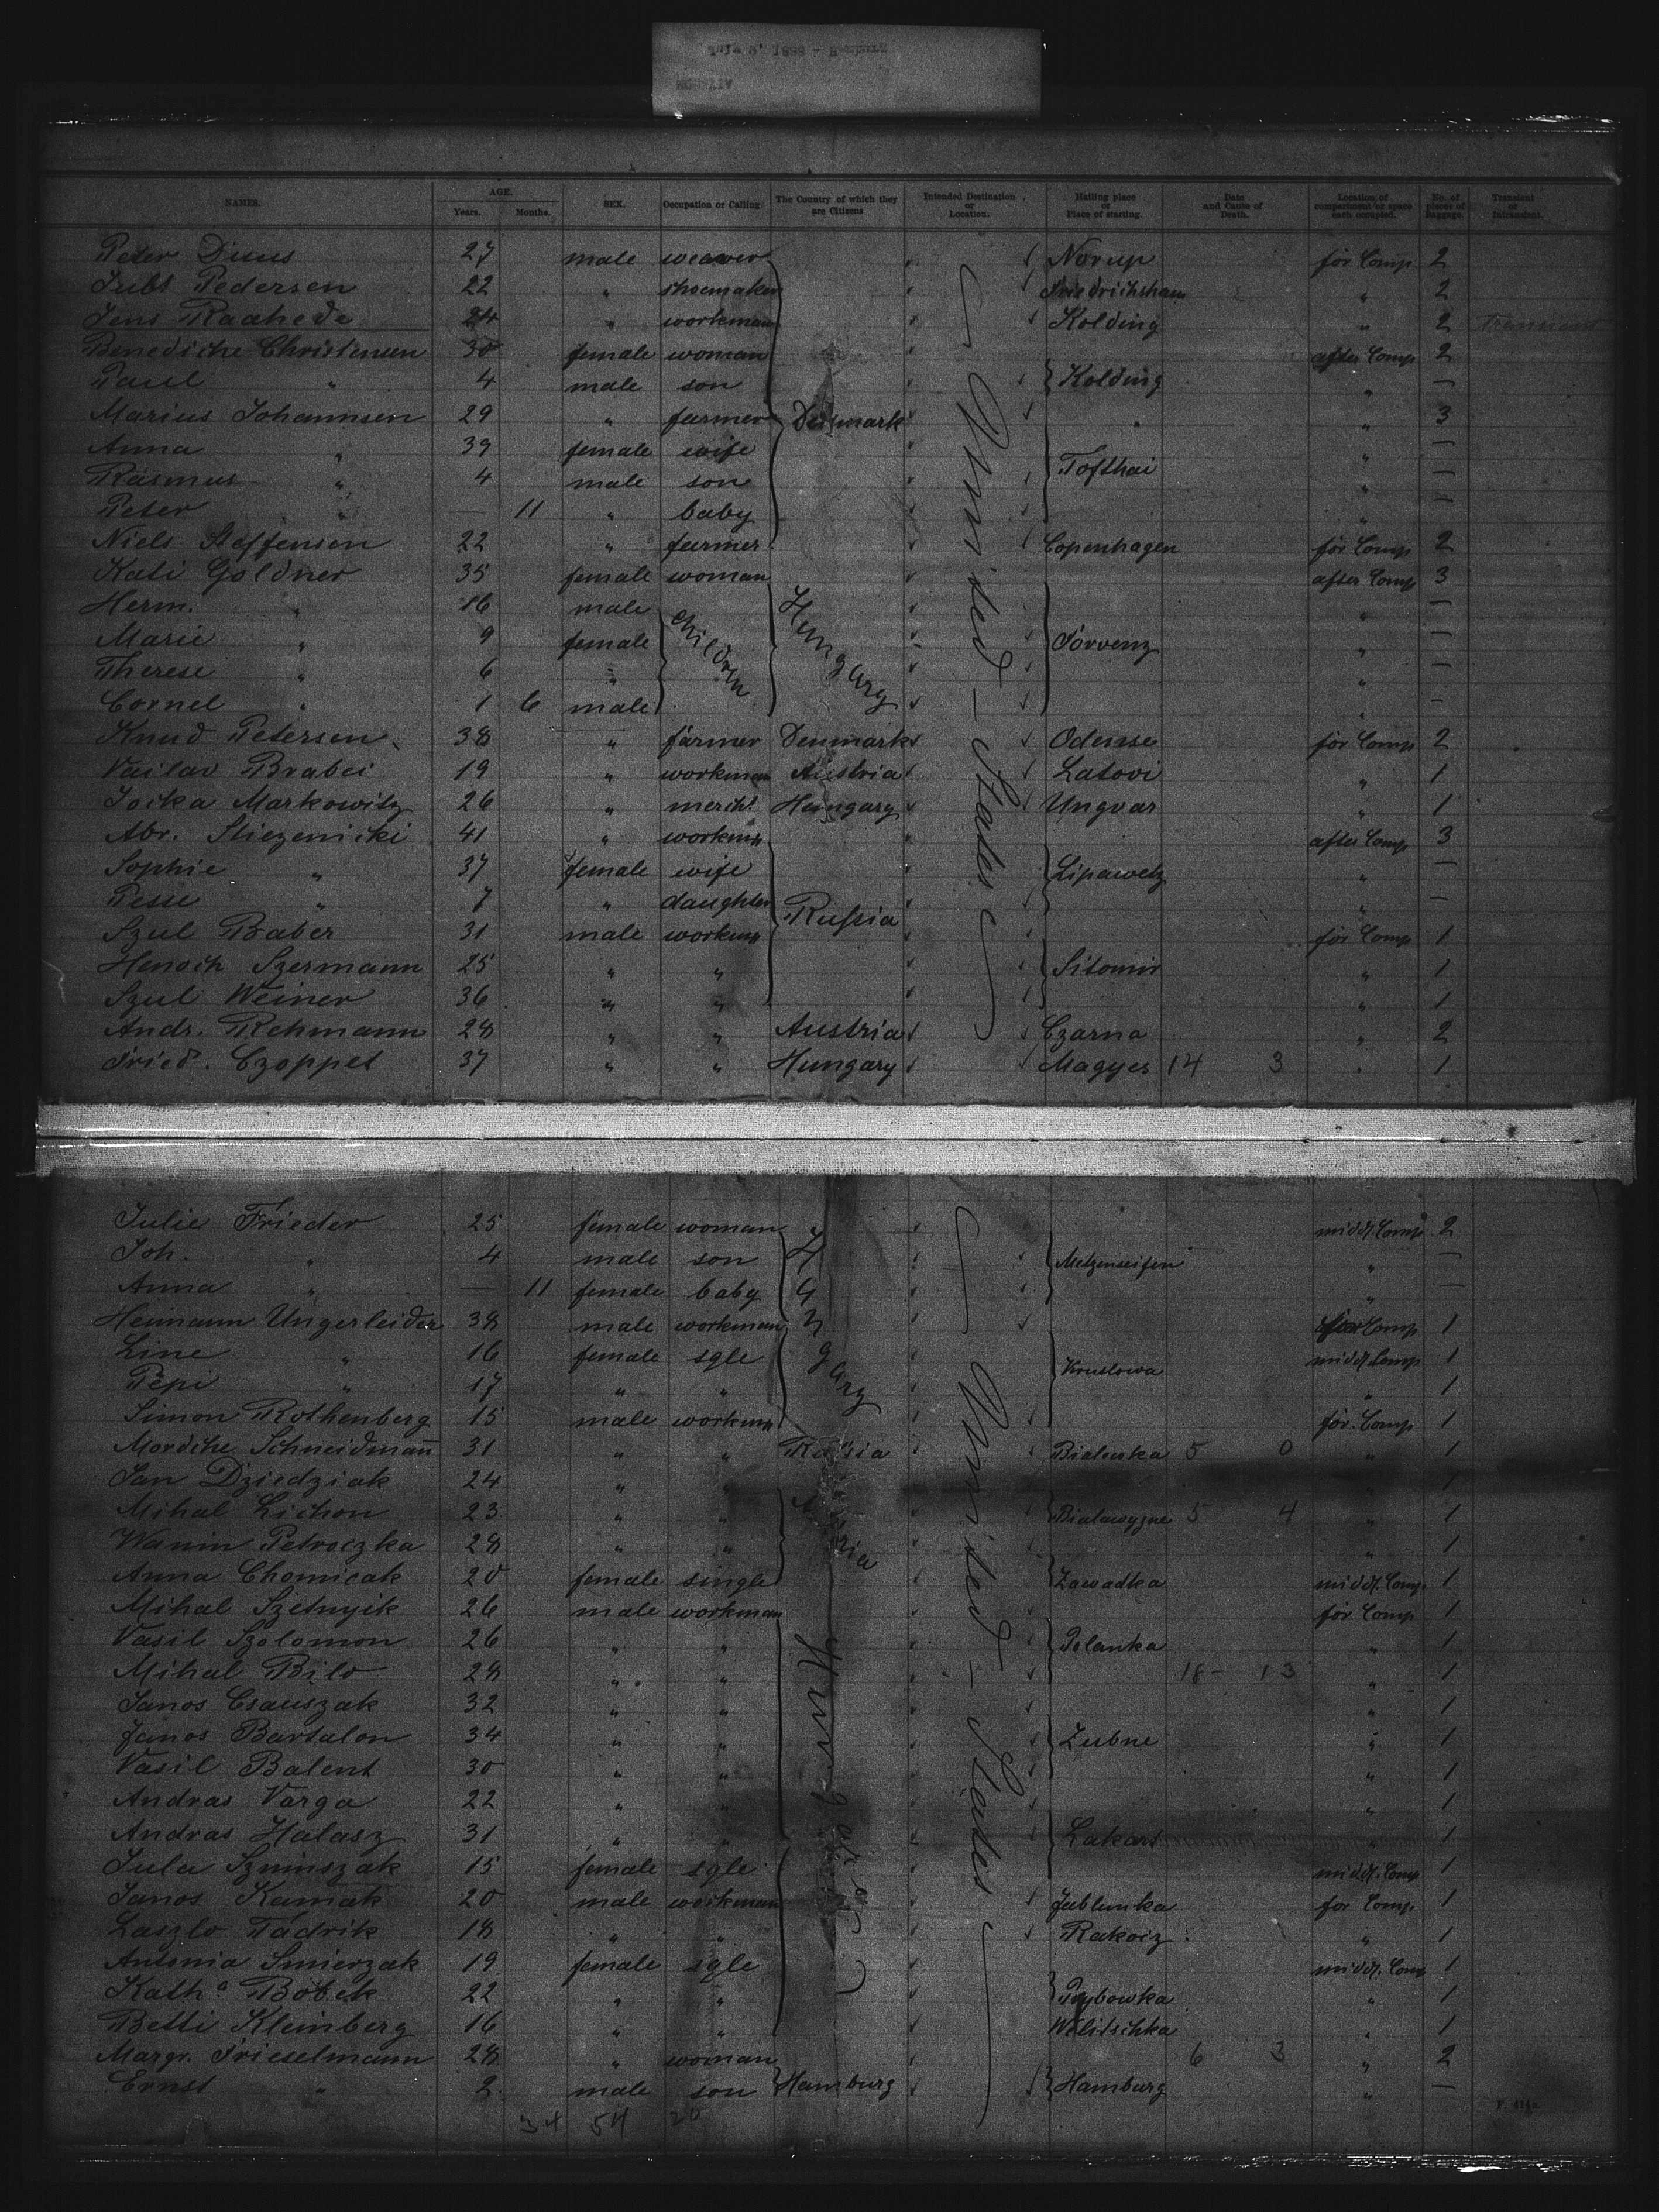 NAMES. AGE. Years. Months. SEX. Occupation or Calling. The Country of which they are Citizens Intended Destination or Location. Hailing place or Place of starting. Date and Cause of Death. Location of compartment or space each occupied. No. of pieces of Baggage. Transient or Intransient.
Peter Duus 27 male weaver Norup för Comp 2
Pedersen 22 " shoemaker Friedrichsham " 2
Jens Raahede 24 " workman Kolding " 2 Transient
Benediche Christensen 30 female woman after Comp 2
Paul " 4 male son Kolding " —
Marius Johannsen 29 " farmer Denmark " " 3
Anna " 39 female wife " —
Rasmus " 4 male son Tofthai " —
Peter " — 11 " baby " —
Niels Steffensen 22 " farmer Copenhagen för Comp 2
Kati Goldner 35 female woman after Comp 3
Herm. " 16 male children Hungary " —
Marie " 9 female Sorvenz " —
Therese " 6 " " —
Cornel " 1 6 male " —
Knud Petersen 38 " farmer Denmark Odense för Comp 2
Vailav Brabei 19 " workman Austria Latovi " 1
Jocka Markowitz 26 " mercht. Hungary Ungvar " 1
Abr. Sliezenicki 41 " workmn after Comp 3
Sophie " 37 female wife Lipawetz " —
Pesse " 7 " daughter Russia " —
Szul Baber 31 male workmn för Comp 1
Henoch Szermann 25 " " Sitomir " 1
Szul Weiner 36 " " " 1
Andr. Rehmann 28 " " Austria Czarna " 2
Fried. Czoppel 37 " " Hungary Magyes 14 3 " 1
United States
Julie Frieder 25 female woman middl. Comp 2
Joh. " 4 male son Hungary Metzenseifen " —
Anna " — 11 female baby " —
Heimann Ungerleider 38 male workman för Comp 1
Line " 16 female sgle Kruslowa middl. Comp 1
Pepi " 17 " " " 1
Simon Rothenberg 15 male workmn för. Comp 1
Mordche Schneidmañ 31 " " Russia Bialowska 5 0 " 1
Jan Dziedziak 24 " " " 1
Mihal Lichon 23 " " Austria Bialawyzne 5 4 " 1
Wanin Petroczka 28 " " " 1
Anna Chomicak 20 female single Zawadka middl. Comp. 1
Mihal Szetnyik 26 male workman för Comp 1
Vasil Szolomon 26 " " Polanka " 1
Mihal Bilo 28 " " 18 - 13 " 1
Janos Csauszak 32 " " Hungary " 1
Janos Bartalon 34 " " Zubne " 1
Vasil Balent 30 " " " 1
Andras Varga 22 " " " 1
Andras Halasz 31 " " Lakart " 1
Jula Szninszak 15 female sgle middl. Comp 1
Janos Kamak 20 male workman Jablunka for Comp. 1
Laszlo Tadrik 18 " " Rakocz " 1
Antonia Smierzak 19 female sgle middl. Comp 1
Kath.a Bobek 22 " " Prybowka " 1
Betti Kleinberg 16 " " Wilitschka " 1
Margr. Frieselmann 28 " woman 6 3 " 2
Ernst " 2 male son Hamburg Hamburg " —
United States
34 54 20
F. 414a.